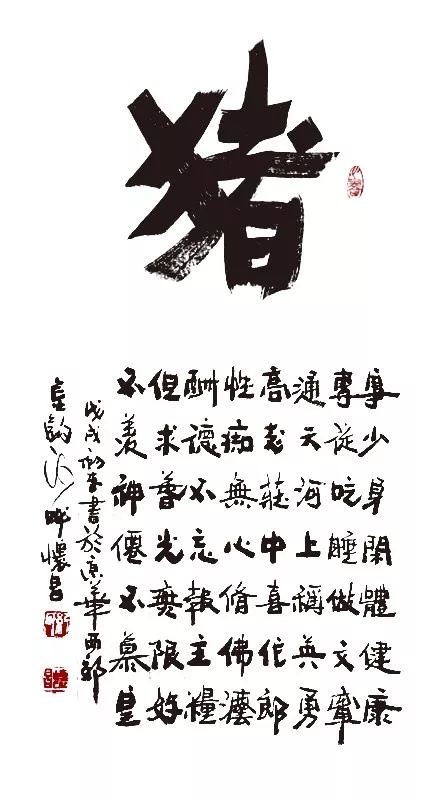 猪
事少身閑體健康
專從吃睡做文章
通天河上稱英勇
高老莊中喜作郎
性痴無心脩佛灋
酬德不忘報主糧
但求普光無限好
不羨神僊不慕皇
戊戌初春書於京華西郊
金鉤河畔懷昌